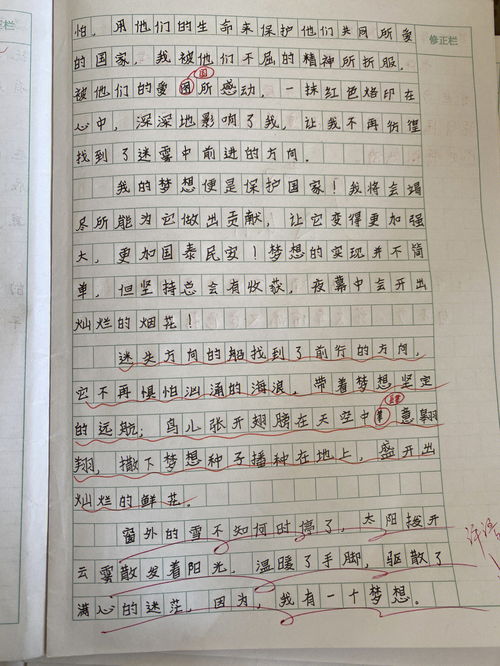 修正栏
怕，用他们的生命来保护他们共同所爱
的国家，我被他们不屈的精神所折服。
被他们的爱国所感动，一抹红色烙印在
心中，深深地影响了我，让我不再彷徨
找到了迷雾中前进的方向。
我的梦想便是保护国家！我将会竭
尽所能为它做出贡献，让它变得更加强
大，更加国泰民安！梦想的实现并不简
单，但坚持总会有收获，夜幕中会开出
灿烂的烟花！
迷失方向的船找到了前行的方向，
它不再惧怕汹涌的海浪，带着梦想坚定
的远航；鸟儿张开翅膀在天空中肆意翱
翔，撒下梦想种子播种在地上，盛开出
灿烂的鲜花。
窗外的雪不如何时停了，太阳拨开
云雾散发着阳光，温暖了手脚，驱散了
满心的迷茫，因为，我有一个梦想。